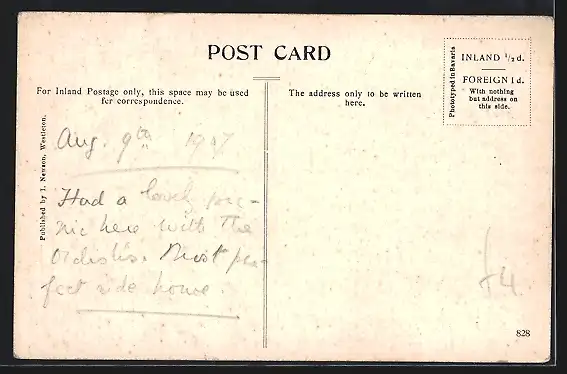 POST CARD
For Inland Postage only, this space may be used
for correspondence.
The address only to be written
here.
Phototyped in Bavaria
INLAND ½ d.
FOREIGN 1 d.
With nothing
but address on
this side.
Published by I. Newson, Westleton.
Aug. 9th 1907
Had a lovely pic-
nic here with the
Most per-
fect ride home.
£4
828